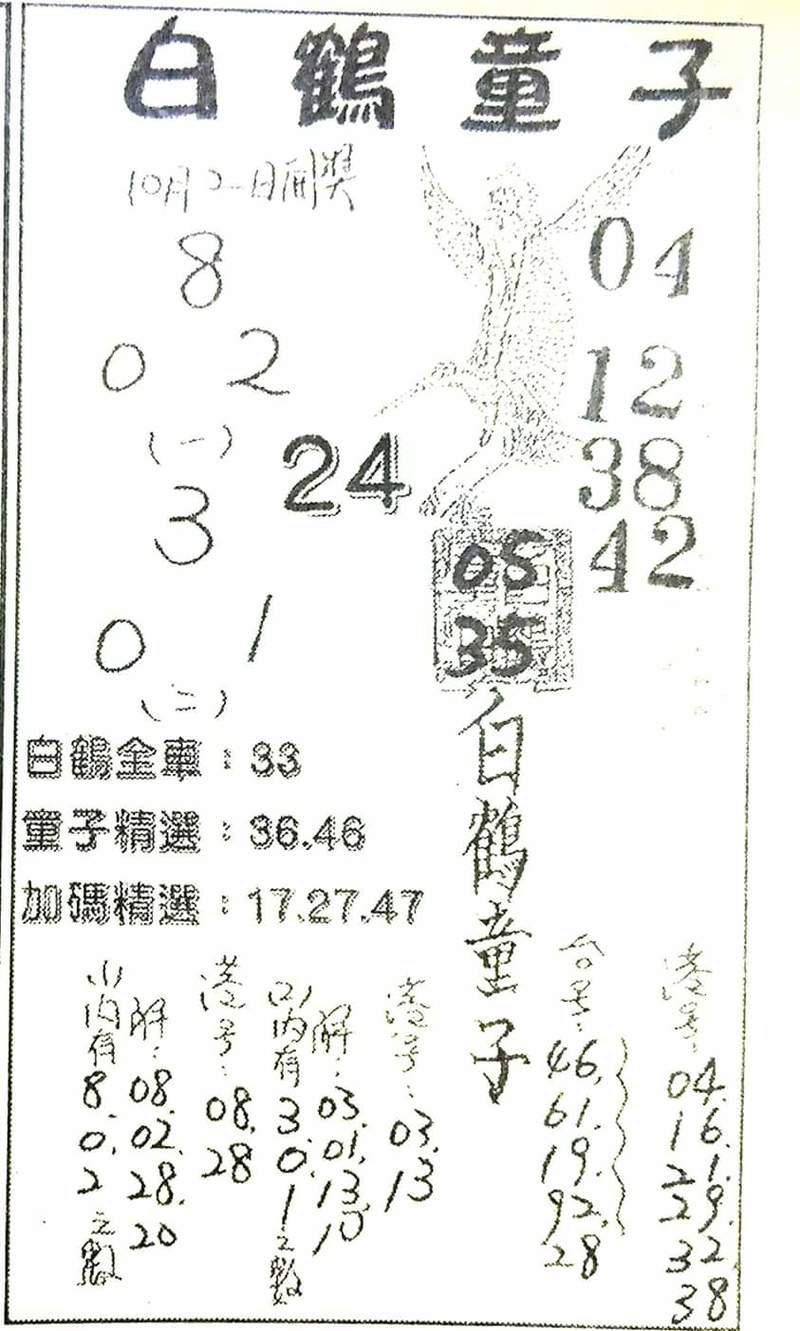 白鶴童子
10月2日開獎
8
0 2
(一)
3
0 1
(二)
24
04
12
38
42
05
35
白鶴童子
白鶴全車：33
童子精選：36.46
加碼精選：17.27.47
(1)內有8.0.2之數
解：08.02.28.20
港号：08.28
(2)內有3.0.1之數
解：03.01.13.10
港号：03.13
合号：46.61.19.92.28
港号：04.16.21.29.32.38